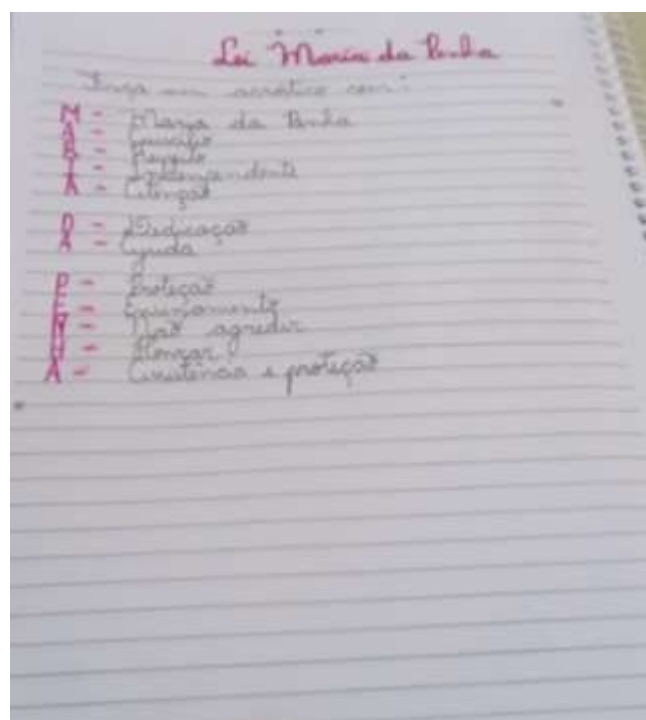 Lei Maria da Penha
Faça um acróstico com:
M - Maria da Penha
A -
R -
I - Independente
A - Atenção
D - Dedicação
A - Ajuda
P - Proteção
E -
N - Não agredir
H - Honrar
A - Assistência e proteção